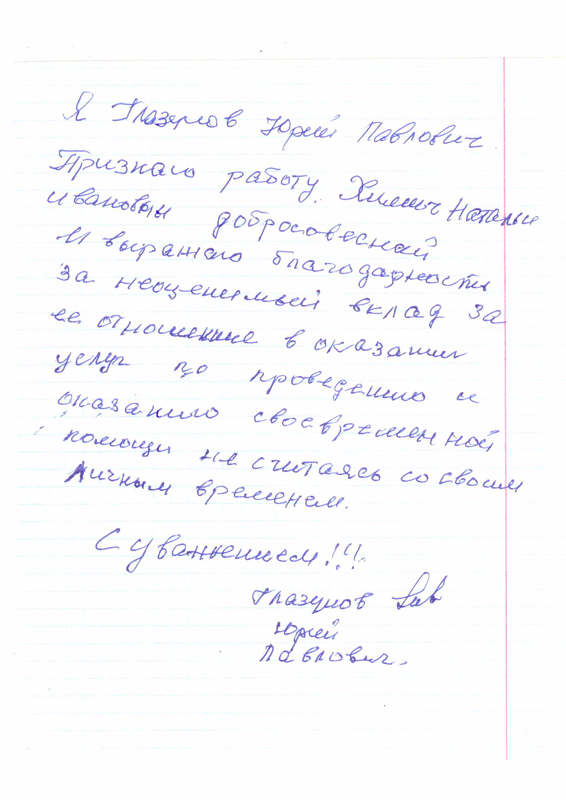 Я Глазунов Юрий Павлович.
Признаю работу Химич Натальи
Ивановны добросовесной
И выражаю благодарности
за неоценимый вклад за
ее отношение в оказании
услуг по проведению и
оказанию своевременной
помощи не считаясь со своим
личным временем.
С уважением!!!
Глазунов
Юрий
Павлович.